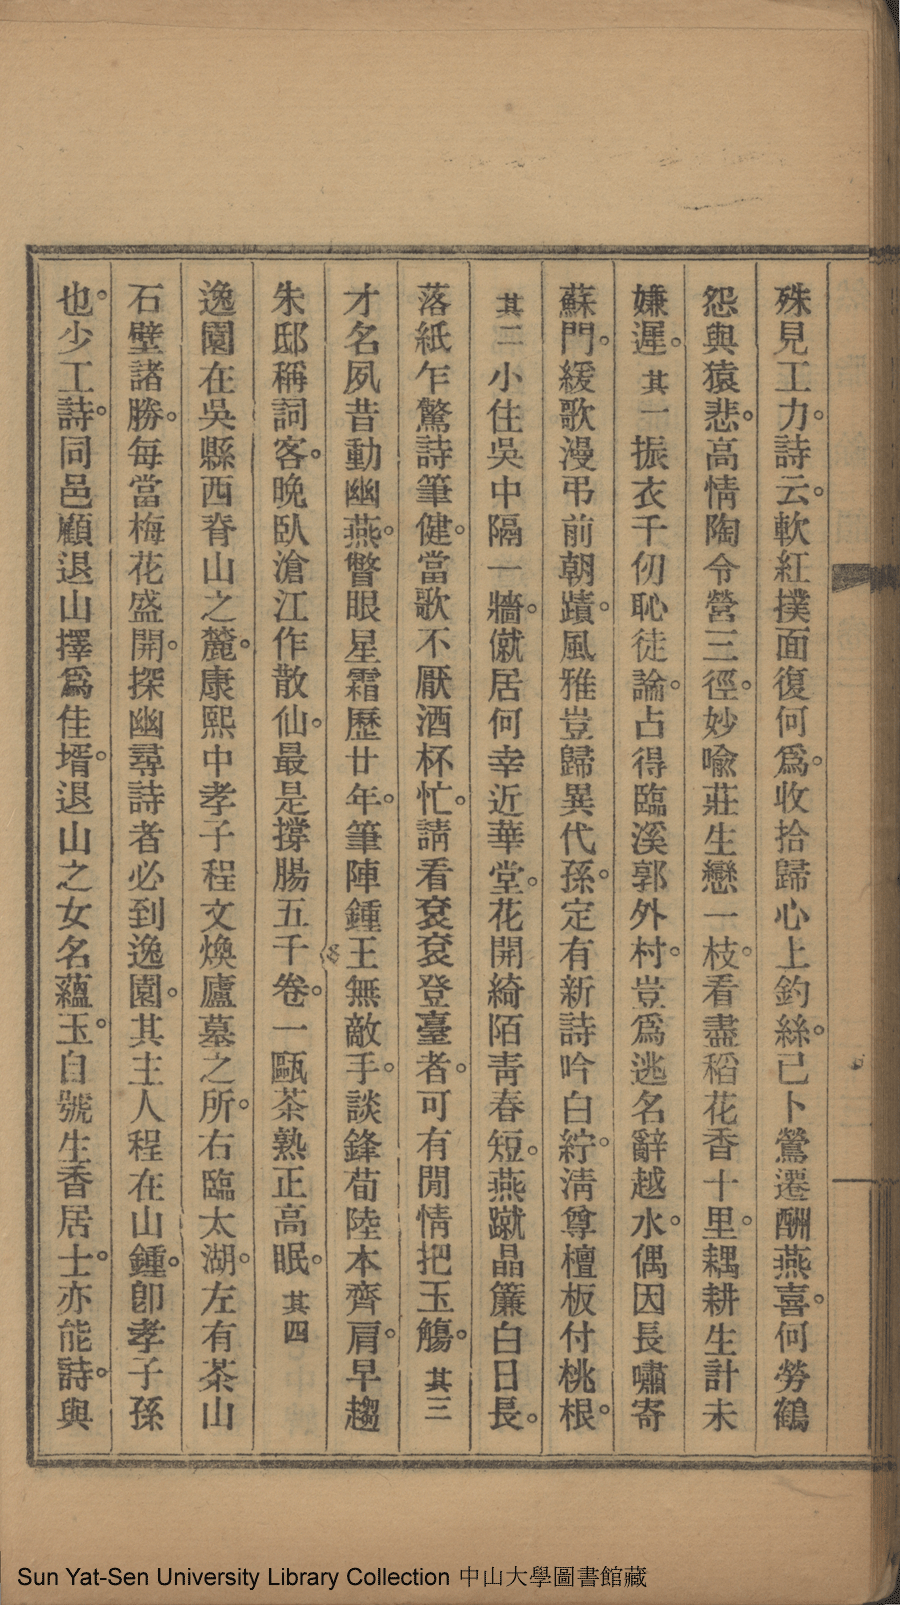 殊見工力。詩云。軟紅撲面復何爲。收拾歸心上釣絲。已卜鶯遷酬燕喜。何勞鶴
怨與猿悲。高情陶令營三徑。妙喩莊生戀一枝。看盡稻花香十里。耦耕生計未
嫌遲。其一振衣千仞恥徒論。占得臨溪郭外村。豈爲逃名辭越水。偶因長嘯寄
蘇門。緩歌漫弔前朝蹟。風雅豈歸異代孫。定有新詩吟白紵。淸尊檀板付桃根。
其二小住吳中隔一牆。僦居何幸近華堂。花開綺陌靑春短。燕蹴晶簾白日長。
落紙乍驚詩筆健。當歌不厭酒杯忙。請看袞袞登臺者。可有閒情把玉觴。其三
才名夙昔動幽燕。瞥眼星霜歷廿年。筆陣鍾王無敵手。談鋒荀陸本齊肩。早趨
朱邸稱詞客。晩臥滄江作散仙。最是撐腸五千卷。一甌茶熟正高眠。其四
逸園在吳縣西脊山之麓。康熙中孝子程文煥廬墓之所。右臨太湖。左有茶山
石壁諸勝。每當梅花盛開。探幽尋詩者必到逸園。其主人程在山鍾。卽孝子孫
也。少工詩。同邑顧退山擇爲佳壻。退山之女名蘊玉。自號生香居士。亦能詩。與
Sun Yat-Sen University Library Collection 中山大學圖書館藏